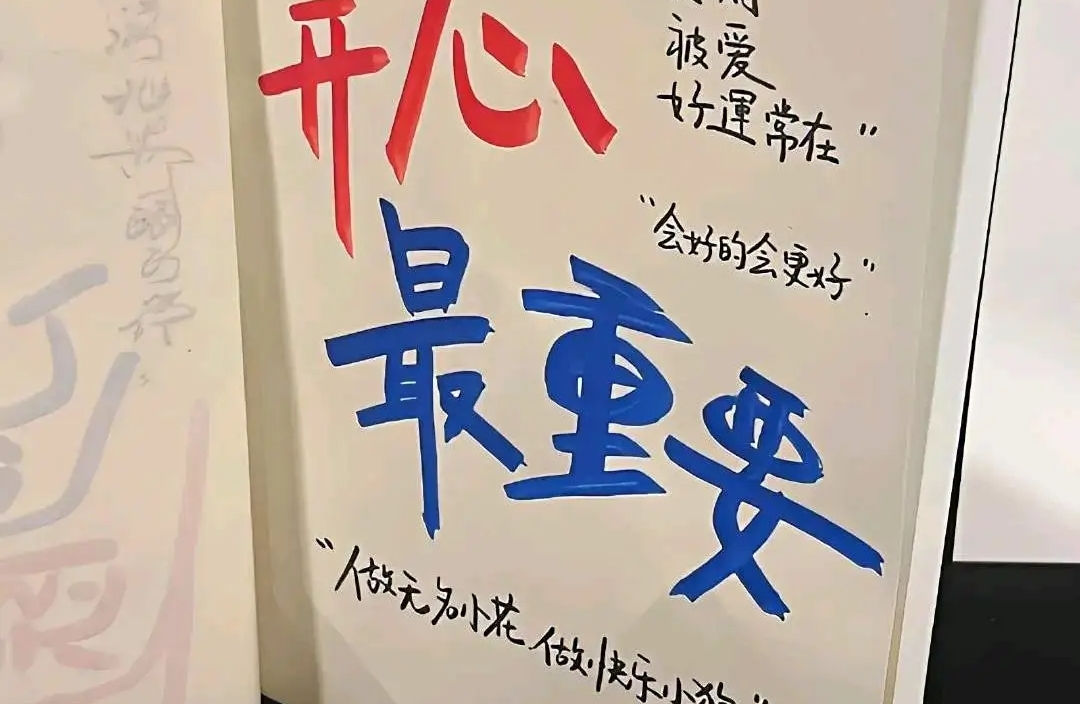 开心
被爱
好運常在"
"会好的会更好"
最重要
"做无名小花 做快乐小狗"